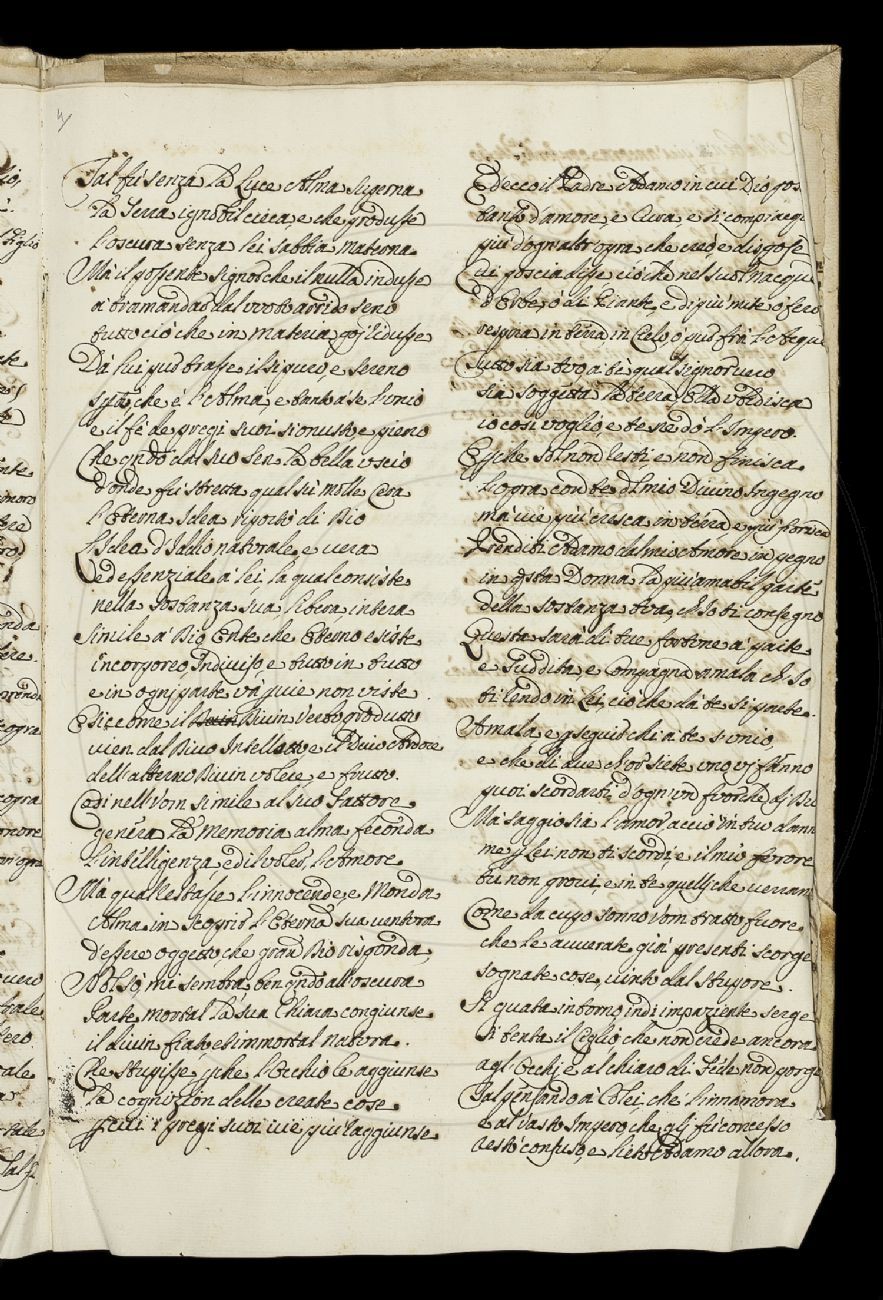 Tal fù senza la Luce Alma superna
la Terra ignobil cieca, e che produsse
l'oscura senza lei sabbia materna
Mà il possente Signor che il nulla indusse
à tramandar dal vvoto arrido seno
tutto ciò che in materia poi ridusse
Dà lui pur trasse il sì puro, e sereno
spirto che è l'Alma, e tanto à sè l'unio
e il fè de pregi suoi sì onusto, e pieno
Che quando dal suo sen la bella uscio
d'onde fù stretta qual sù molle Cera
l'Eterna Idea riportò di Dio
L'Idea d'Iddio naturale, e vera
ed essenziale à lei la qual consiste
nella sostanza sua, libera, intera
Simile à Dio Ente che Eterno esiste
incorporeo Indiviso e tutto in tutto
e in ogni parte và pur e non viste
E siccome il Divin Verbo produtto
vien dal Divo Intelletto e il Divo Ardore
dell'alterno Divin volere, e frutto.
Così nell'Vom simile al suo Fattore
genera la Memoria alma feconda
l'intelligenza, ed il voler, l'Amore
Mà qual'estasi e l'innocende, e Monda
Alma in scoprir l'Eterna sua ventura
d'essere oggetto, che gran Dio risponda,
Nol sò, mi sembra ben quando all'oscura
Parte mortal la sua Chiara congiunse
il divin fiat, e l'immortal natura.
Che stupisse perche l'Occhio le aggiunse
la cognizion delle create cose
per cui i pregi suoi vie più raggiunse
E decco il Padre Adamo in cui Dio pos
tanto d'amore, e Cura, e si compiacqu
più d'ogni altr'opra che creò, e dispose
Cui poscia disse ciò che nel suol nacque
d'Erbe, ò di Piante, e di più mite ò fero
respira in terra in Cielo, ò pur frà l'Acque
Tutto sia tuo, à tè qual Signor vero
sia soggetta la terra, ella vbbidisca
io così voglio, e te ne dò l'Impero.
E perche sol non resti e non finisca
l'opra con te del mio Divino Ingegno
mà vie più cresca in terra, e più fiorisca
Prenditi Adamo dal mio Amore in pegno
in questa Donna la più amabil parte
della sostanza tua, ch'Io ti consegno
Questa sarà di tue fortune à parte
e suddita, e Compagna amala ch'Io
ti rendo in Lei, ciò che da te si parte.
Amala e persegui chi à te s'unio,
e che di due ch'or siete uno vi fanno
puoi scordarti d'ogn'un fuorche di Dio
Mà saggio sia l'amor acciò in tuo danno
me per Lei non ti scordi, e il mio furore
tù non provi, e in te quelli che verran
Come da cupo sonno Vom tratto fuore
che le avverate già presenti scorge
sognate cose, vinto dal stupore.
Si guata intorno indi impaziente serge
si tenta il Ciglio che non crede ancora
agl'Occhi e al chiaro dì Fede non porge
Tal pensando à Colei che l'innamora
e al vasto Impero che gli fù concesso
restò confuso, e lieto Adamo allora.